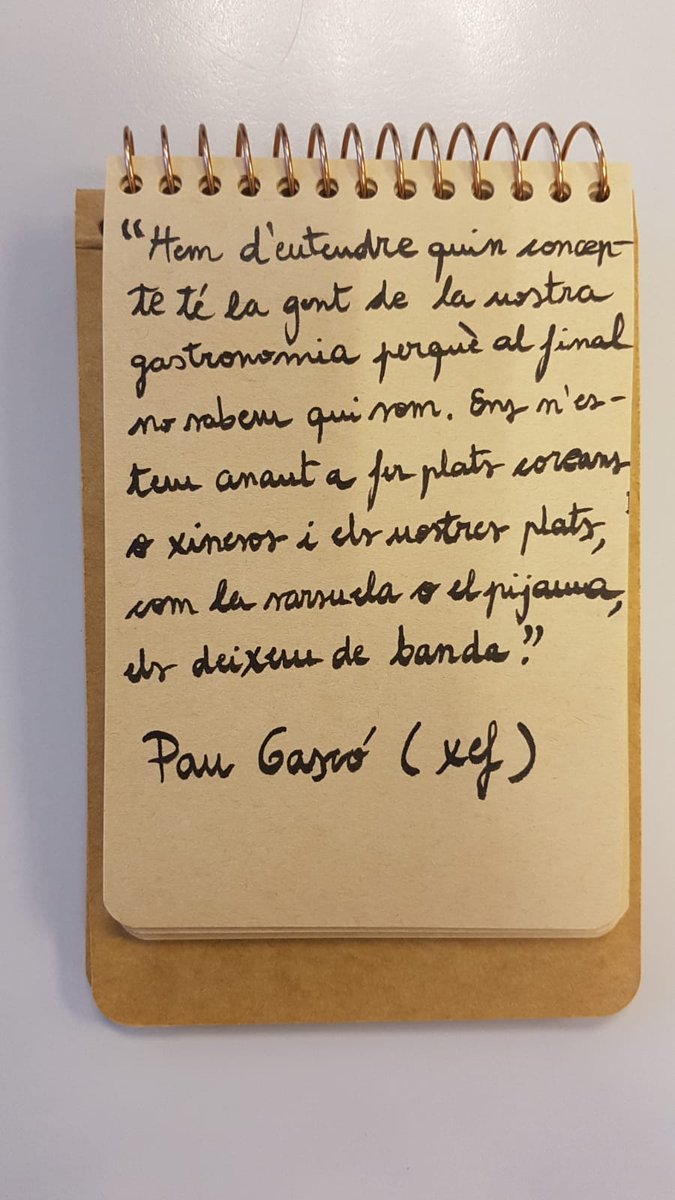 “Hem d'entendre quin concep-
te té la gent de la nostra
gastronomia perquè al final
no sabem qui som. Ens n'es-
tem anant a fer plats coreans
o xinesos i els nostres plats,
com la sarsuela o el pijama,
els deixem de banda.”
Pau Gascó (xef)